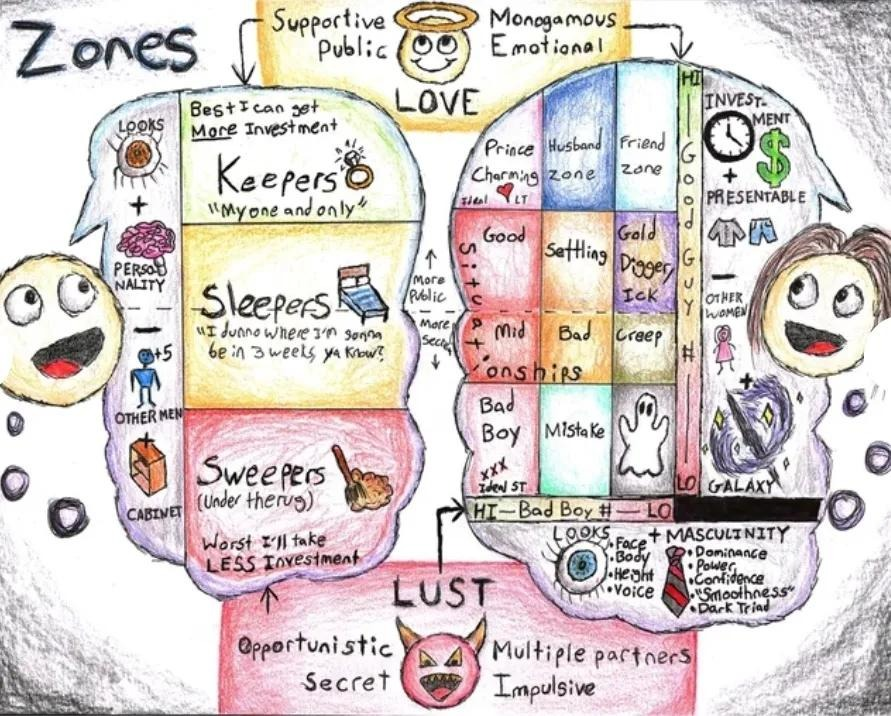 Zones
Supportive
Public
Monogamous
Emotional
LOVE
LOOKS
+
PERSO
NALITY
-
+5
OTHER MEN
+
CABINET
Best I can get
More Investment
Keepers
"My one and only"
Sleepers
"I dunno where I'm gonna
be in 3 weeks, ya know?
Sweepers
(Under the rug)
Worst I'll take
LESS Investment
More
Public
More
Secret
Prince
Charming
Ideal LT
Husband
zone
Friend
zone
Good
Settling
Gold
Digger,
Ick
Mid
Bad
Creep
Situationships
Bad
Boy
xxx
Ideal ST
Mistake
HI
Good Guy #
LO
HI-Bad Boy #-LO
INVEST-
MENT
$
+
PRESENTABLE
-
OTHER
WOMEN
+
GALAXY
LOOKS
•Face
•Body
•Height
•Voice
+ MASCULINITY
•Dominance
•Power
•Confidence
•"Smoothness"
•Dark Triad
LUST
Opportunistic
Secret
Multiple partners
Impulsive